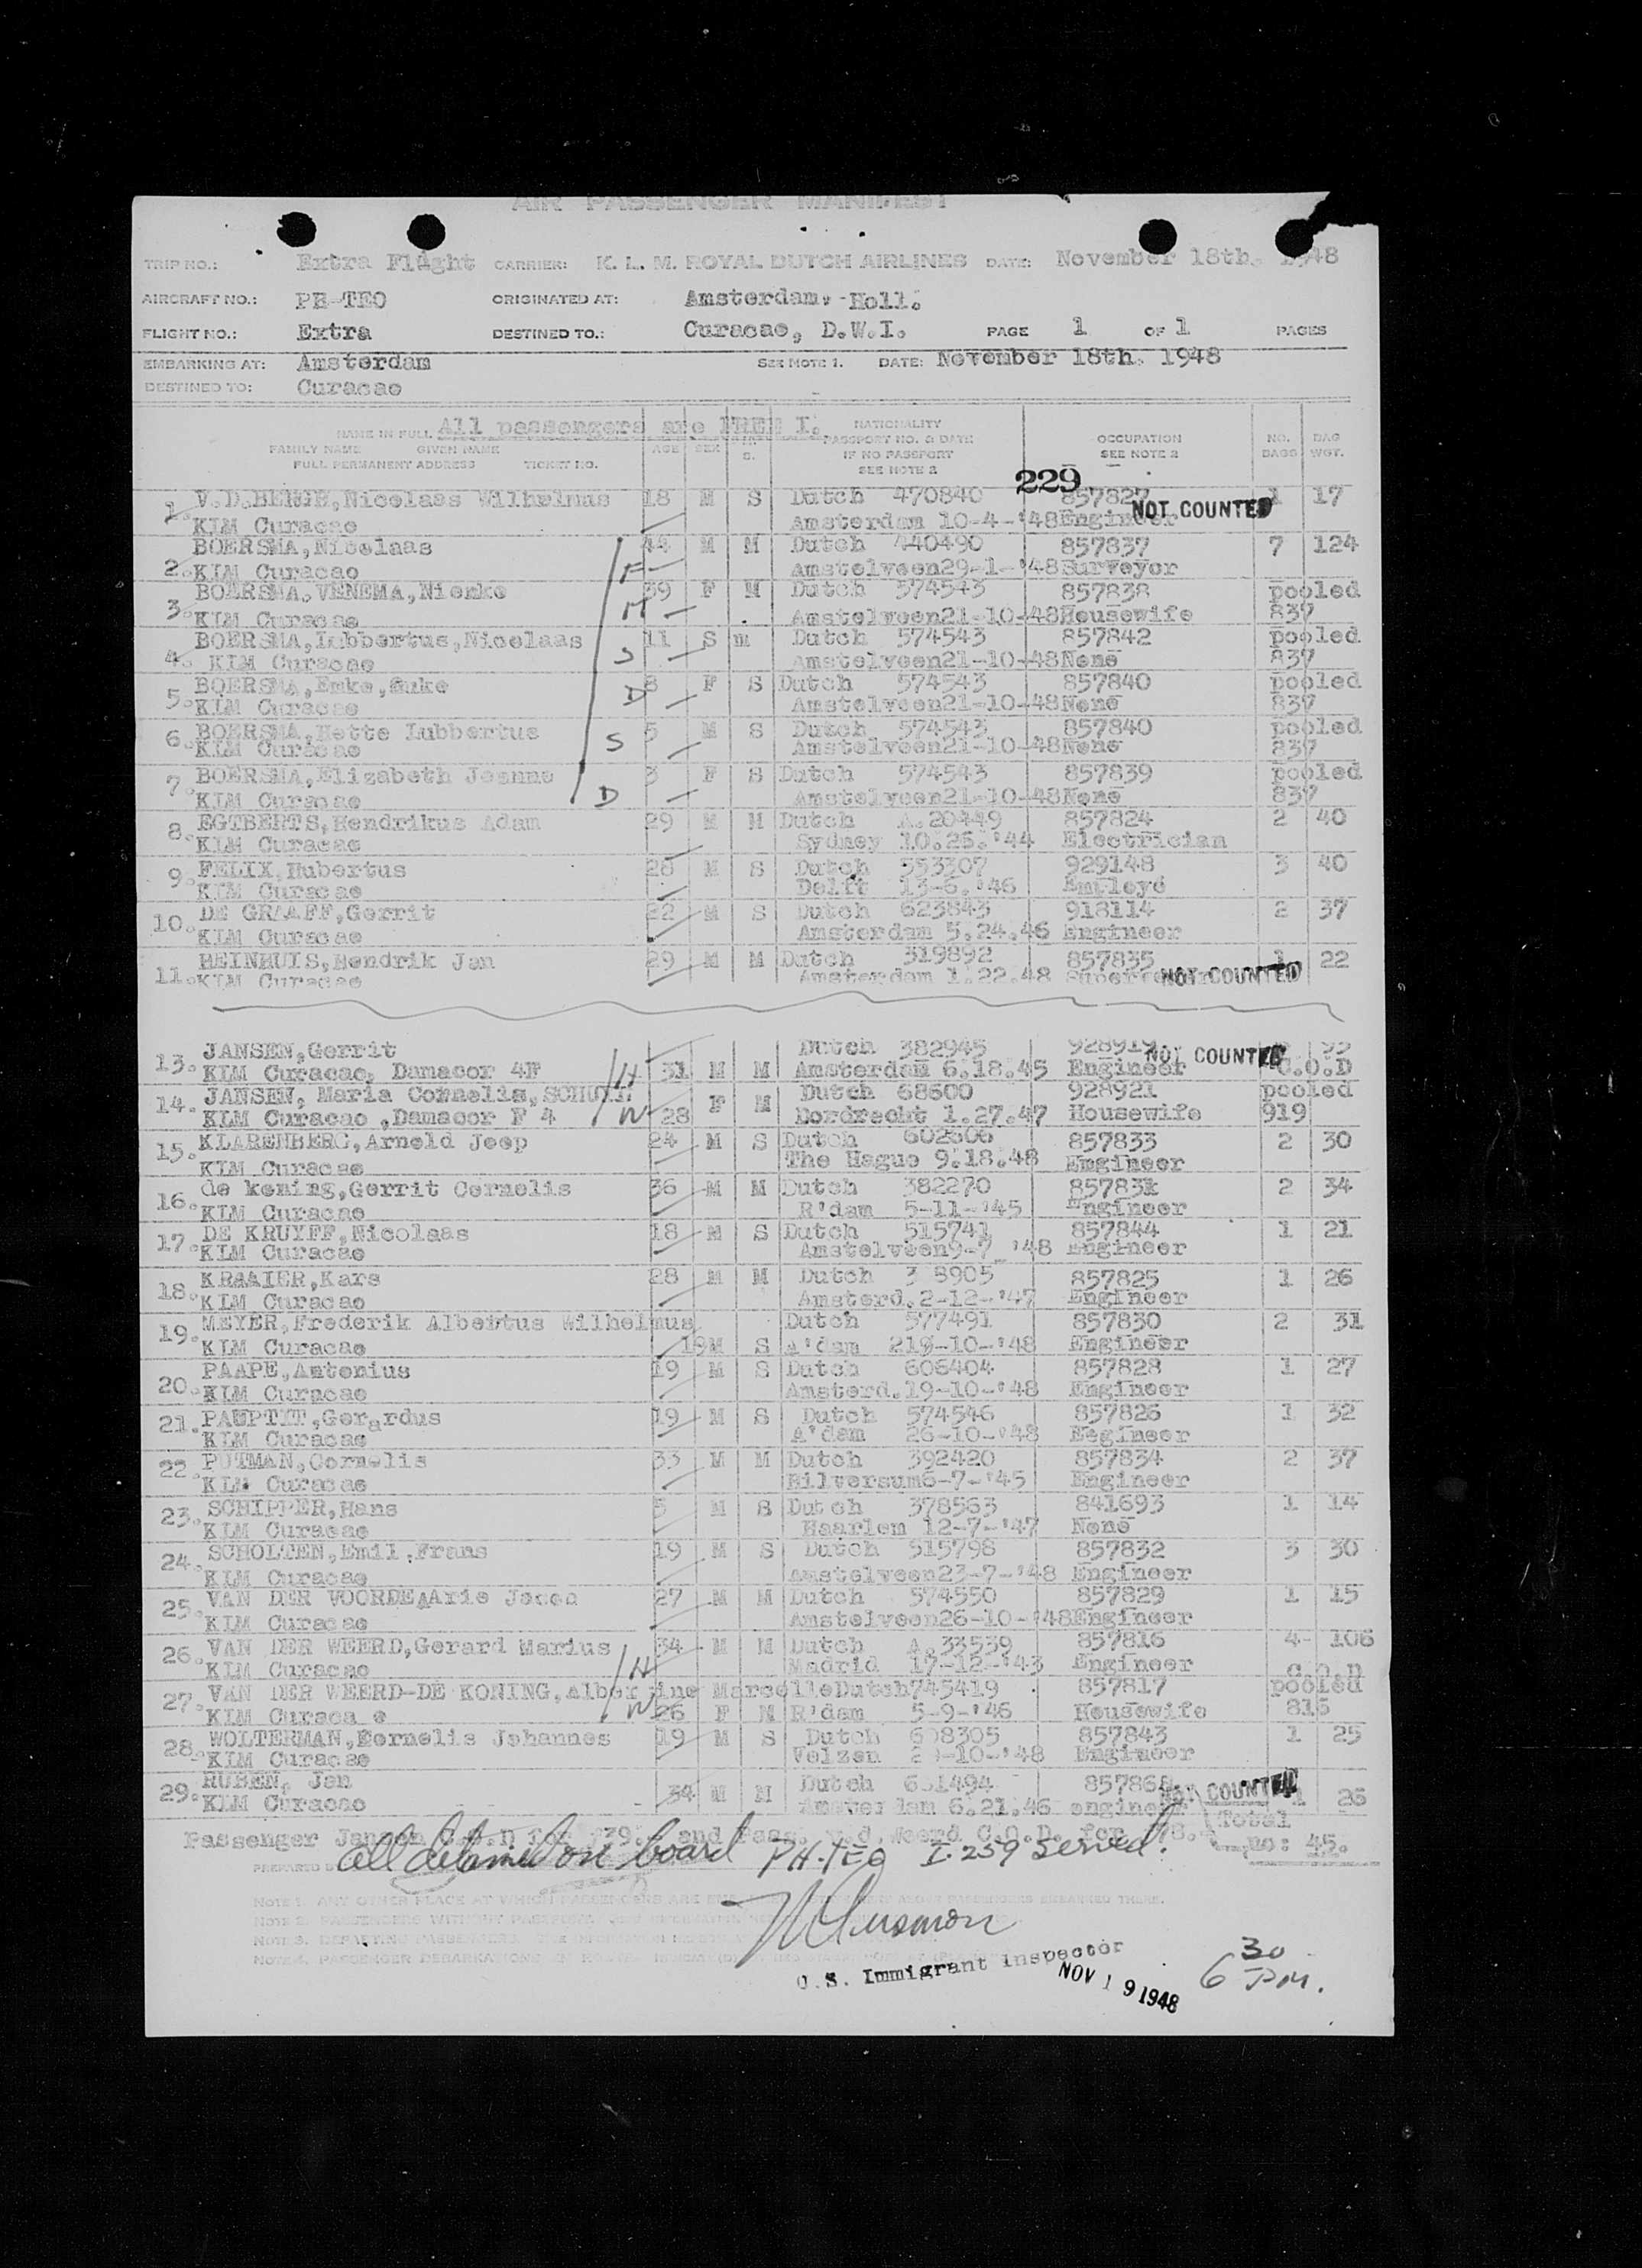 AIR PASSENGER MANIFEST
TRIP NO.: Extra Flight CARRIER: K. L. M. ROYAL DUTCH AIRLINES DATE: November 18th. 1948
AIRCRAFT NO.: PH-TEO ORIGINATED AT: Amsterdam, Holl.
FLIGHT NO.: Extra DESTINED TO.: Curacao, D.W.I. PAGE 1 OF 1 PAGES
EMBARKING AT: Amsterdam SEE NOTE 1. DATE: November 18th. 1948
DESTINED TO: Curacao
NAME IN FULL All passengers are ITEM I. NATIONALITY
FAMILY NAME GIVEN NAME AGE SEX S. PASSPORT NO. & DATE OCCUPATION NO. BAG
FULL PERMANENT ADDRESS TICKET NO. IF NO PASSPORT SEE NOTE 2 BAGS WGT.
SEE NOTE 2
229
1. V.D.BERGE,Nicolaas Wilhelmus 18 M S Dutch 470840 857827 1 17
KLM Curacao Amsterdam 10-4-'48 Engineer NOT COUNTED
BOERSMA,Nicolaas 44 M M Dutch 440490 857837 7 124
2. KLM Curacao F Amstelveen29-1-'48 Surveyor
BOERSMA.VENEMA,Niemke 39 F M Dutch 574543 857838 pooled
3. KLM Curacao M Amstelveen21-10-48 Housewife 837
BOERSMA,Lubbertus,Nicolaas 11 S m Dutch 574543 857842 pooled
4. KLM Curacao S Amstelveen21-10-48 None 837
5. BOERSMA,Emke,Auke 8 F S Dutch 574543 857840 pooled
KLM Curacao D Amstelveen21-10-48 None 837
6. BOERSMA,Hette Lubbertus S 5 M S Dutch 574543 857840 pooled
KLM Curacao Amstelveen21-10-48 None 837
7. BOERSMA,Elizabeth Jeanne 3 F S Dutch 574543 857839 pooled
KLM Curacao D Amstelveen21-10-48 None 837
8. EGTBERTS,Hendrikus Adam 29 M M Dutch A.20449 857824 2 40
KLM Curacao Sydney 10.25.'44 Electrician
9. FELIX,Hubertus 28 M S Dutch 553307 929148 3 40
KLM Curacao Delft 13-6.'46 Employe
10. DE GRAAFF,Gerrit 22 M S Dutch 623843 918114 2 37
KLM Curacao Amsterdam 5.24.46 Engineer
HEINHUIS,Hendrik Jan 29 M M Dutch 319892 857835 1 22
11. KLM Curacao Amsterdam 1.22.48 NOT COUNTED
13. JANSEN,Gerrit Dutch 382945 928919 NOT COUNTED
KLM Curacao, Damacor 4F H 31 M M Amsterdam 6.18.45 Engineer C.O.D
14. JANSEN, Maria Cornelis, F M Dutch 68600 928921 pooled
KLM Curacao ,Damacor F 4 W 28 Dordrecht 1.27.47 Housewife 919
15. KLARENBERG,Arnold Joop 24 M S Dutch 602606 857833 2 30
KLM Curacao The Hague 9.18.48 Engineer
16. de koning,Gerrit Cornelis 36 M M Dutch 382270 85783 2 34
KLM Curacao R'dam 5-11-'45 Engineer
17. DE KRUYFF,Nicolaas 18 M S Dutch 515741 857844 1 21
KLM Curacao Amstelveen9-7 '48 Engineer
18. KRAAIER,Kars 28 M M Dutch 3 8905 857825 1 26
KLM Curacao Amsterd.2-12-'47 Engineer
19. MEYER,Frederik Albertus Wilhelmus Dutch 577491 857830 2 31
KLM Curacao 19M S A'dam -10-'48 Engineer
20. PAAPE,Antonius 19 M S Dutch 606404 857828 1 27
KLM Curacao Amsterd.19-10-'48 Engineer
21. PAUPTIT,Gerardus 19 M S Dutch 574546 857826 1 32
KLM Curacao A'dam 26-10-'48 Negineer
22 PUTMAN,Cornelis 33 M M Dutch 392420 857834 2 37
KLM Curacao Hilversum6-7-'45 Engineer
23. SCHIPPER,Hans 5 M S Dutch 378563 841693 1 14
KLM Curacao Haarlem 12-7-'47 None
24. SCHOLTEN,Emil.Frans 19 M S Dutch 515798 857832 3 30
KLM Curacao Amstelveen23-7-'48 Engineer
25. VAN DER VOORDE,Arie Jacob 27 M M Dutch 574550 857829 1 15
KLM Curacao Amstelveen26-10-'48 Engineer
26. VAN DER WEERD,Gerard Marius 34 M M Dutch A.33539 857816 4- 106
KLM Curacao H Madrid 17-12-'43 Engineer C.O.D
27. VAN DER WEERD-DE KONING,Albertine Marcelle Dutch745419 857817 pooled
KLM Curaca o W 26 F M R'dam 5-9-'46 Housewife 816
28. WOLTERMAN,Cornelis Johannes 19 M S Dutch 608305 857843 1 25
KLM Curacao Velzen -10-'48 Engineer
29. RUBEN, Jan 34 M M Dutch 631494 85786 NOT COUNTED 26
KLM Curacao Amsterdam 6.21.46 engineer Total
Passenger Jansen C.O.D for and Pass. v.d.Weerd C.O.D. for no: 45.
all detained on board PH-TEO I-259 served.
NOTE 1. ANY OTHER PLACE AT WHICH PASSENGERS ARE ABOVE PASSENGERS EMBARKED THERE.
NOTE 2. PASSENGERS WITHOUT PASSPORT
NOTE 3. DEPARTING PASSENGERS
NOTE 4. PASSENGER DEBARKATIONS
U.S. Immigrant Inspector
NOV 19 1948
6 30 P.M.